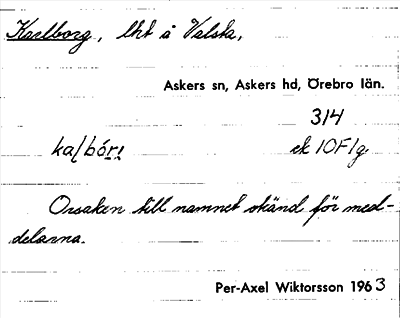 Karlborg, lht å Valsta,
Askers sn, Askers hd, Örebro län.
314
ka(bór; ek 10F1g
Orsaken till namnet okänd för med-
delarna.
Per-Axel Wiktorsson 1963